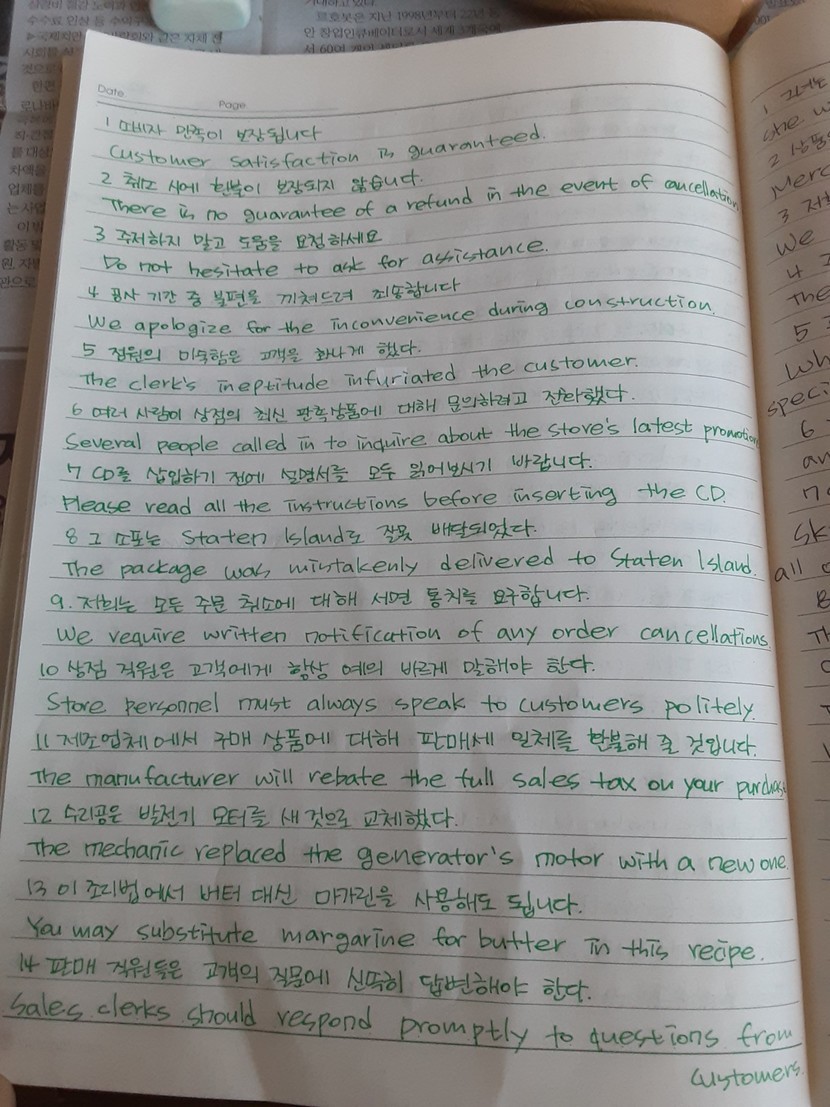 Date
Page
1 소비자 만족이 보장됩니다
Customer satisfaction is guaranteed.
2 취소 시에 환불이 보장되지 않습니다.
There is no guarantee of a refund in the event of cancellation
3 주저하지 말고 도움을 요청하세요
Do not hesitate to ask for assistance.
4 공사 기간 중 불편을 끼쳐드려 죄송합니다
We apologize for the inconvenience during construction.
5 점원의 미숙함은 고객을 화나게 했다.
The clerk's ineptitude infuriated the customer.
6 여러 사람이 상점의 최신 판촉상품에 대해 문의하려고 전화했다.
Several people called in to inquire about the store's latest promotion
7 CD를 삽입하기 전에 설명서를 모두 읽어보시기 바랍니다.
Please read all the instructions before inserting the CD.
8 그 소포는 Staten Island로 잘못 배달되었다.
The package was mistakenly delivered to Staten Island.
9. 저희는 모든 주문 취소에 대해 서면 통지를 요구합니다.
We require written notification of any order cancellations.
10 상점 직원은 고객에게 항상 예의 바르게 말해야 한다.
Store personnel must always speak to customers politely.
11 제조업체에서 구매 상품에 대해 판매세 일체를 환불해 줄 것입니다.
The manufacturer will rebate the full sales tax on your purchase
12 수리공은 발전기 모터를 새 것으로 교체했다.
The mechanic replaced the generator's motor with a new one.
13 이 조리법에서 버터 대신 마가린을 사용해도 됩니다.
You may substitute margarine for butter in this recipe.
14 판매 직원들은 고객의 질문에 신속히 답변해야 한다.
Sales clerks should respond promptly to questions from
customers.